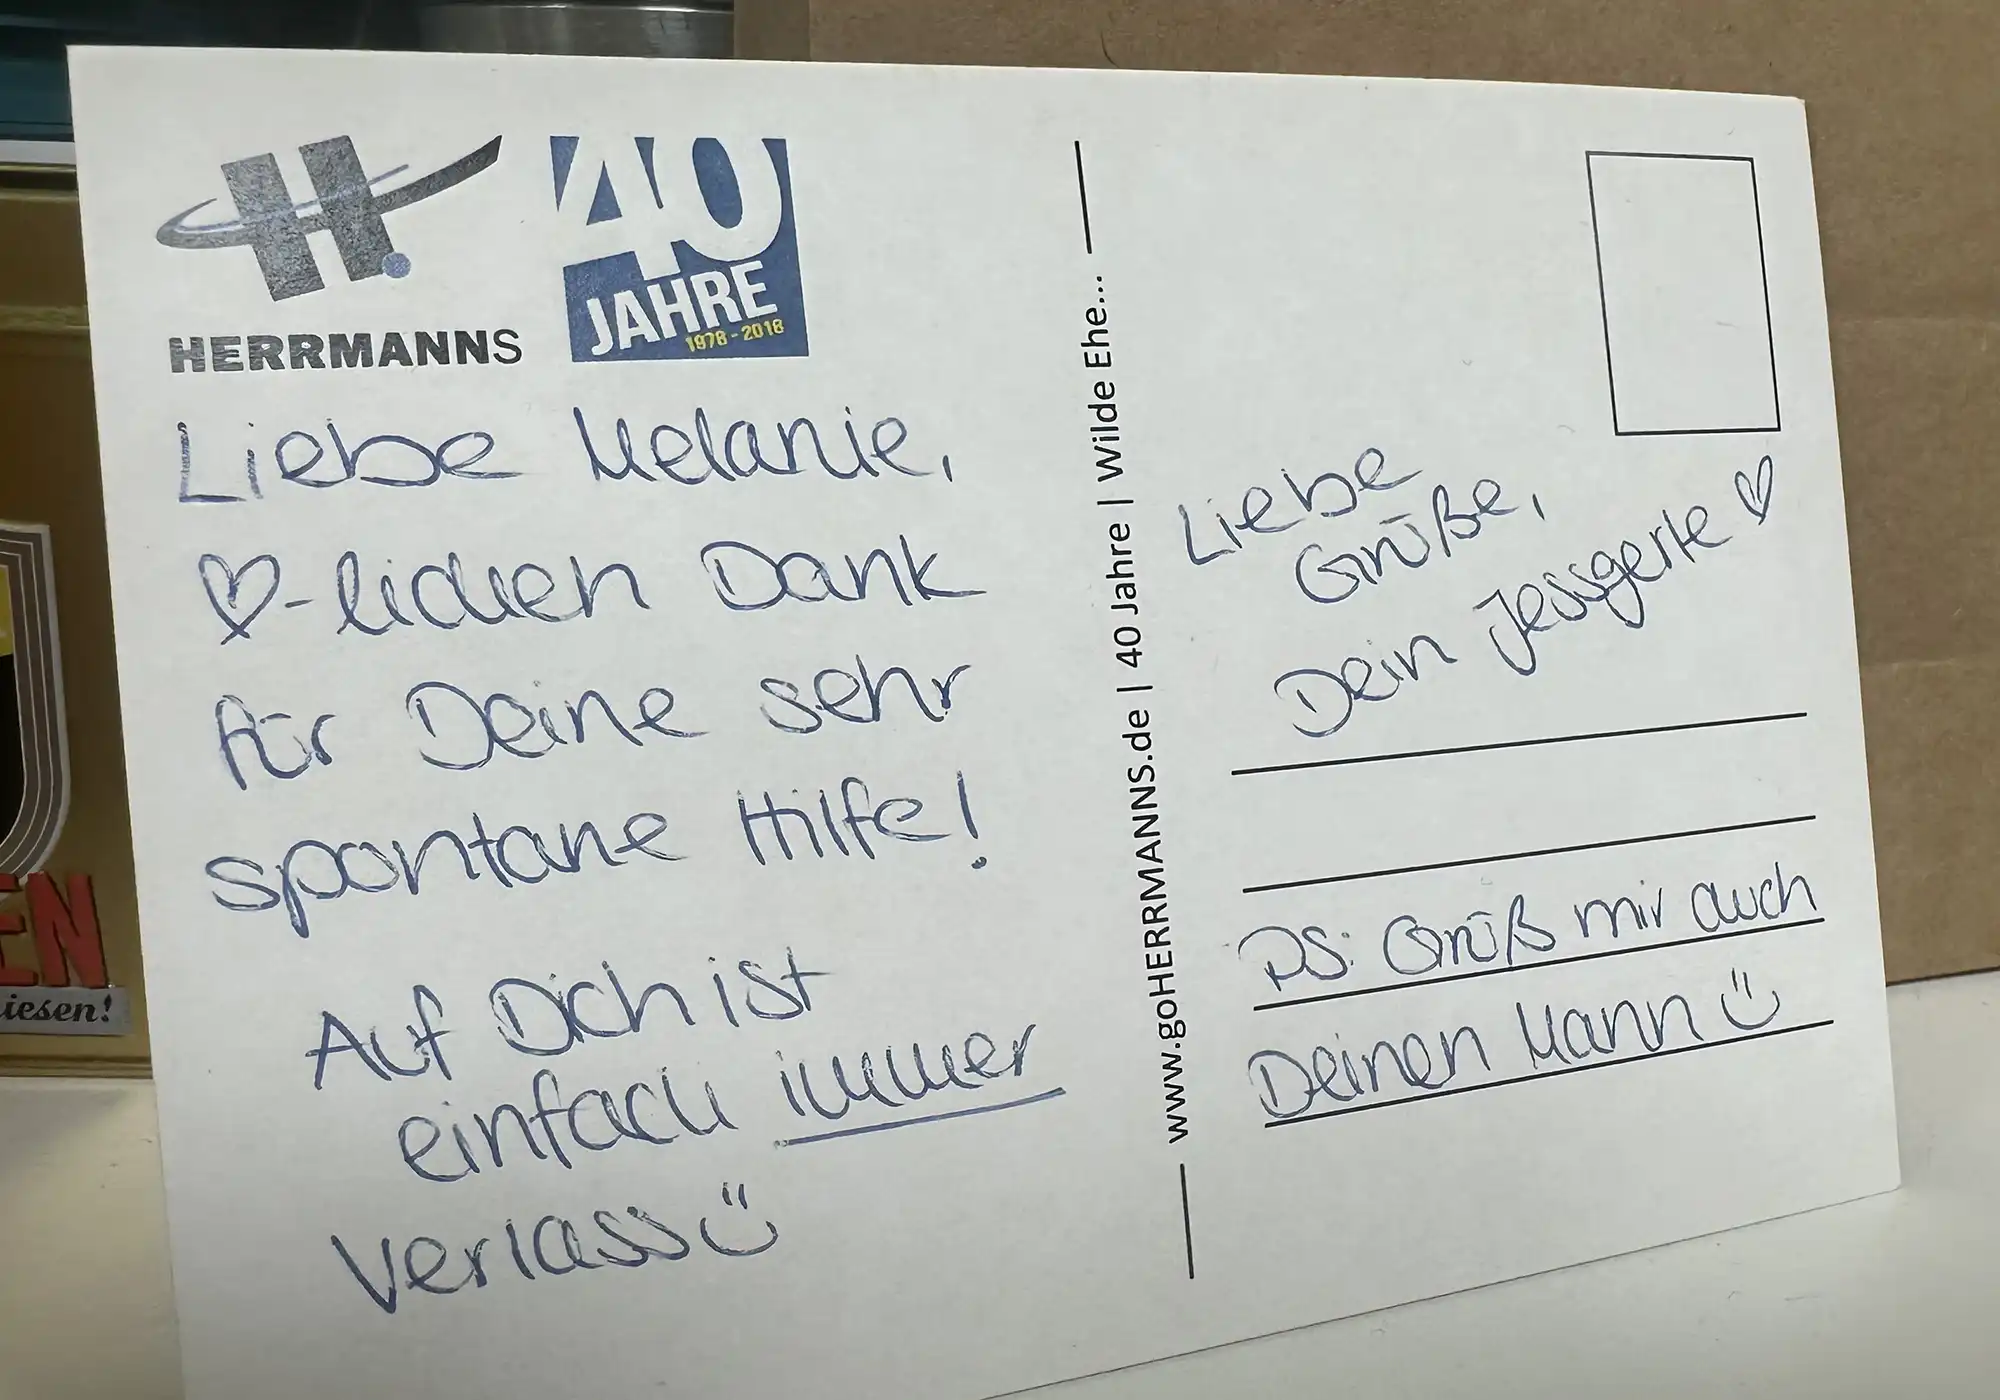 HERRMANNS
40
JAHRE
1978-2018
Liebe Melanie,
♡-lichen Dank
für Deine sehr
spontane Hilfe!
Auf Dich ist
einfach immer
Verlass ☺
www.goHERRMANNS.de | 40 Jahre | Wilde Ehe...
Liebe
Grüße,
Dein Jessgerte ♡
PS: Grüß mir auch
Deinen Mann ☺
EN
iesen!